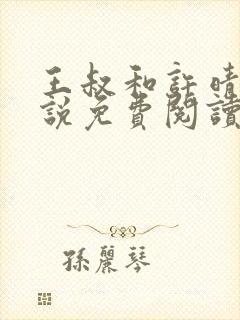 王叔和許晴
說免費閱讀
孫麗琴